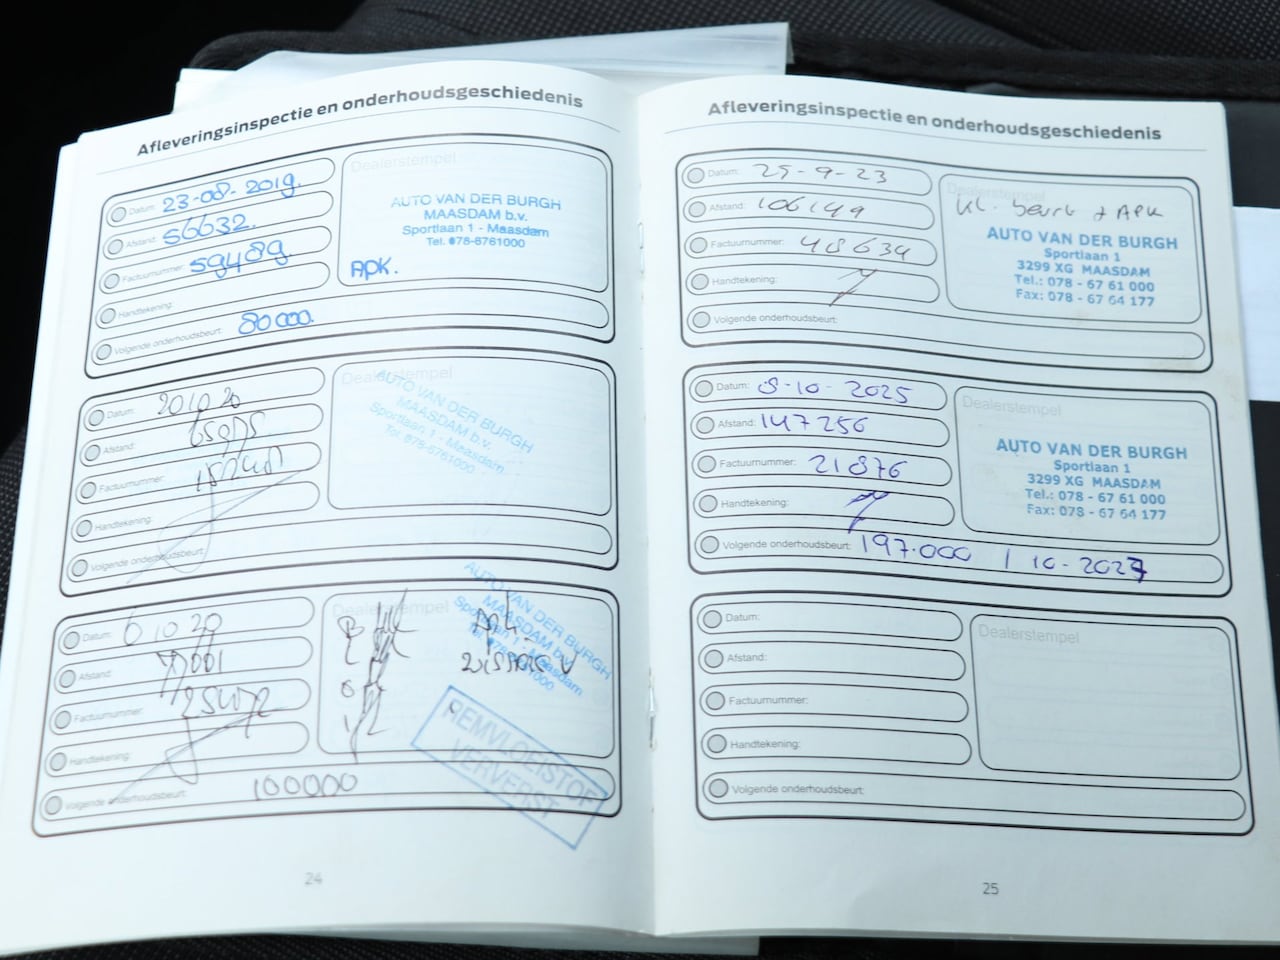 Afleveringsinspectie en onderhoudsgeschiedenis
Datum: 23-08-2019.
Afstand: 56632.
Factuurnummer: 59489.
Handtekening:
Volgende onderhoudsbeurt: 80000.
Dealerstempel
AUTO VAN DER BURGH
MAASDAM b.v.
Sportlaan 1 - Maasdam
Tel. 078-6761000
APK.
Datum: 201020
Afstand:
Factuurnummer:
Handtekening:
Volgende onderhoudsbeurt:
Dealerstempel
AUTO VAN DER BURGH
MAASDAM b.v.
Sportlaan 1 - Maasdam
Tel. 078-6761000
Datum: 6 10
Afstand:
Factuurnummer:
Handtekening:
Volgende onderhoudsbeurt: 100000
Dealerstempel
APK.
AUTO VAN DER BURGH
MAASDAM b.v.
Sportlaan 1 - Maasdam
Tel. 078-6761000
REMVLOEISTOF
VERVERST
24
Afleveringsinspectie en onderhoudsgeschiedenis
Datum: 25-9-23
Afstand: 106149
Factuurnummer: 48634
Handtekening:
Volgende onderhoudsbeurt:
Dealerstempel
kl. beurt + APK
AUTO VAN DER BURGH
Sportlaan 1
3299 XG MAASDAM
Tel.: 078 - 67 61 000
Fax: 078 - 67 64 177
Datum: 8-10-2025
Afstand: 147256
Factuurnummer: 21876
Handtekening:
Volgende onderhoudsbeurt: 197.000 / 10-2027
Dealerstempel
AUTO VAN DER BURGH
Sportlaan 1
3299 XG MAASDAM
Tel.: 078 - 67 61 000
Fax: 078 - 67 64 177
Datum:
Afstand:
Factuurnummer:
Handtekening:
Volgende onderhoudsbeurt:
Dealerstempel
25